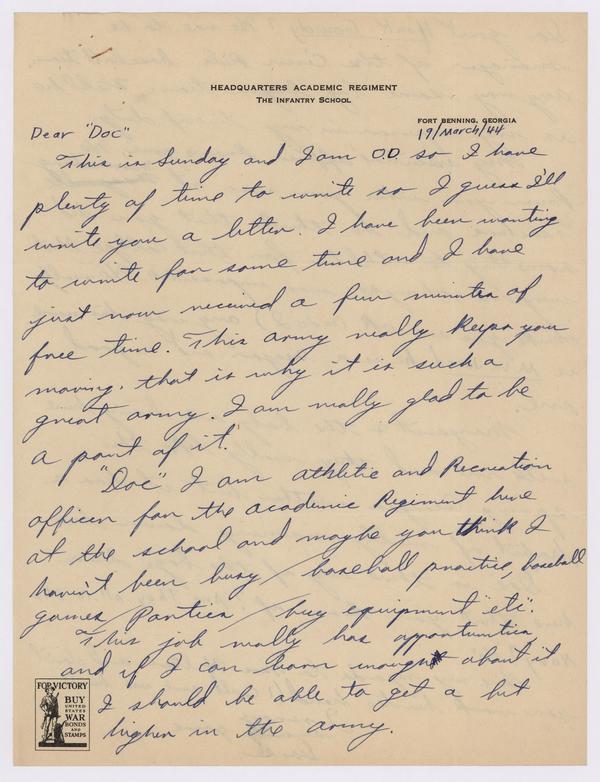 HEADQUARTERS ACADEMIC REGIMENT
THE INFANTRY SCHOOL
FORT BENNING, GEORGIA
19/March/44
Dear "Doc"
This is Sunday and I am O.D. so I have
plenty of time to write so I guess I'll
write you a letter. I have been wanting
to write for some time and I have
just now received a few minutes of
free time. This army really keeps you
moving. that is why it is such a
great army. I am really glad to be
a part of it.
"Doc" I am athletic and Recreation
officer for the academic Regiment here
at the school and maybe you think I
haven't been busy / baseball practice, baseball
games / Parties / buy equipment "etc".
This job really has opportunities
and if I can learn enough about it
I should be able to get a bit
higher in the army.
FOR VICTORY
BUY
UNITED
STATES
WAR
BONDS
AND
STAMPS